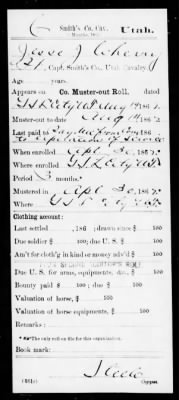 C Smith's Co., Cav. Utah.
Months, 1862.
Jesse J Cherry
Capt. Smith's Co., Utah Cavalry.
Age years.
Appears on
Co. Muster-out Roll, dated
G S L City U T Aug 14 186 2.
Muster-out to date Aug 14 186 2.
Last paid to
to expiration of service
When enrolled Apl 30, 186 2.
Where enrolled G S L City U T
Period 3 months.
Mustered in Apl 30, 186 2.
Where G S L City U T
Clothing account:
Last settled , 186 ; drawn since $ 100
Due soldier $ 100; due U. S. $ 100
Am't for cloth'g in kind or money adv'd $ 100
Due U. S. for arms, equipments, &c., $ 100
Bounty paid $ 100; due $ 100
Valuation of horse, $ 100
Valuation of horse equipments, $ 100
Remarks:
The only roll on file for this organization.
Book mark:
Copyist.